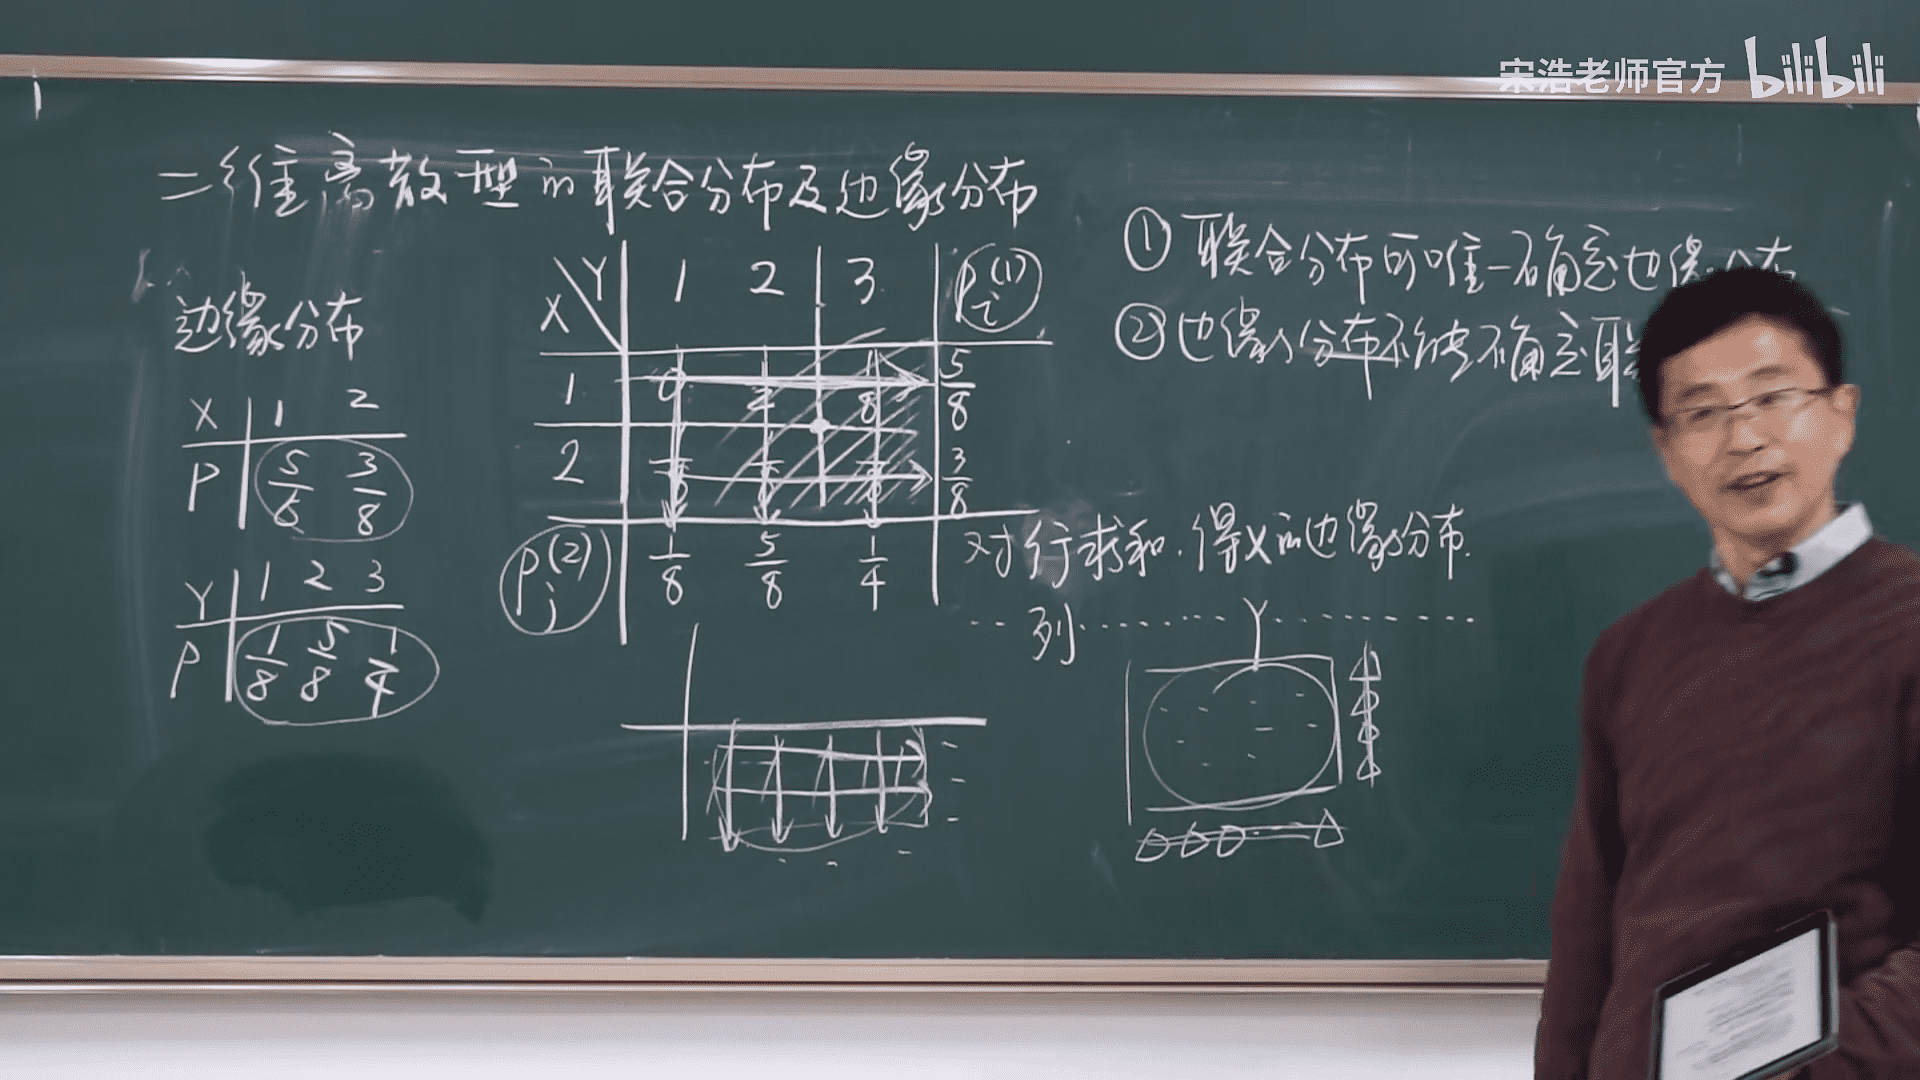 宋浩老师官方 bilibili
二维离散型的联合分布及边缘分布
边缘分布
X 1 2
P 5/8 3/8
Y 1 2 3
P 1/8 5/8 1/4
X Y 1 2 3 P_i^(1)
1 0 5/8
2 3/8
P_j^(2) 1/8 5/8 1/4
① 联合分布可唯一确定边缘分布
② 边缘分布不能确定联
对行求和.得X的边缘分布.
列
Y